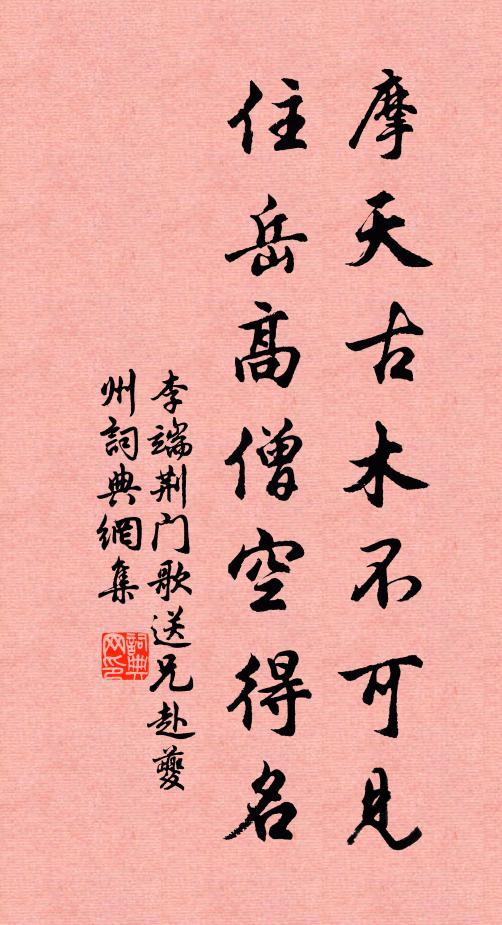 摩天古木不可見
住岳高僧空得名
李端荆门歌送兄赴夔
州詞典網集
詞典
网印